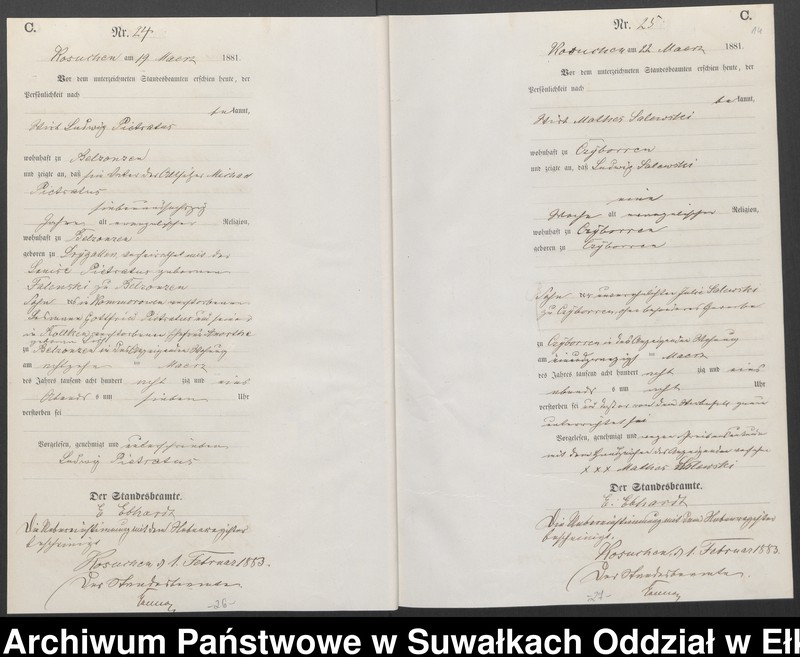 C.
Nr. 24
Kosuchen am 19 Maerz 1881.
Vor dem unterzeichneten Standesbeamten erschien heute, der
Persönlichkeit nach
bekannt,
Wirt Ludwig Pietratus
wohnhaft zu Belzonzen
und zeigte an, daß sein Vater der Michael
Pietratus
Jahre alt evangelischer Religion,
wohnhaft zu Belzonzen
geboren zu Drygallen, verheirathet mit der
Louise Pietratus geborenen
Falenski zu Belzonzen
Sohn
Gottfried Pietratus und seiner
in
zu Belzonzen in des Anzeigenden Wohnung
am achtzehn ten Maerz
des Jahres tausend acht hundert acht zig und eins
Abends um sieben Uhr
verstorben sei
Vorgelesen, genehmigt und unterschrieben
Ludwig Pietratus
Der Standesbeamte.
E. Ebhardt
Die Uebereinstimmung mit dem Hauptregister
bescheinigt
Kosuchen d 1. Februar 1883.
Der Standesbeamte
-26-
C.
Nr. 25
Kosuchen am 22 Maerz 1881.
Vor dem unterzeichneten Standesbeamten erschien heute, der
Persönlichkeit nach
bekannt,
Wirt Mathes Salewski
wohnhaft zu Czyborren
und zeigte an, daß Ludwig Salewski
eine
Woche alt evangelischer Religion,
wohnhaft zu Czyborren
geboren zu Czyborren
Sohn der unverehelichten Julie Salewski
zu Czyborren, ohne besonderes Gewerbe
zu Czyborren in des Anzeigenden Wohnung
am einundzwanzig ten Maerz
des Jahres tausend acht hundert acht zig und eins
abends um acht Uhr
verstorben sei und daß er von dem Sterbefall genau
unterrichtet sei
Vorgelesen, genehmigt und wegen
mit dem Handzeichen des Anzeigenden versehen
x x x Mathes Salewski
Der Standesbeamte.
E. Ebhardt
Die Uebereinstimmung mit dem Hauptregister
bescheinigt.
Kosuchen d 1 Februar 1883.
Der Standesbeamte
-27-
Archiwum Państwowe w Suwałkach Oddział w Ełk